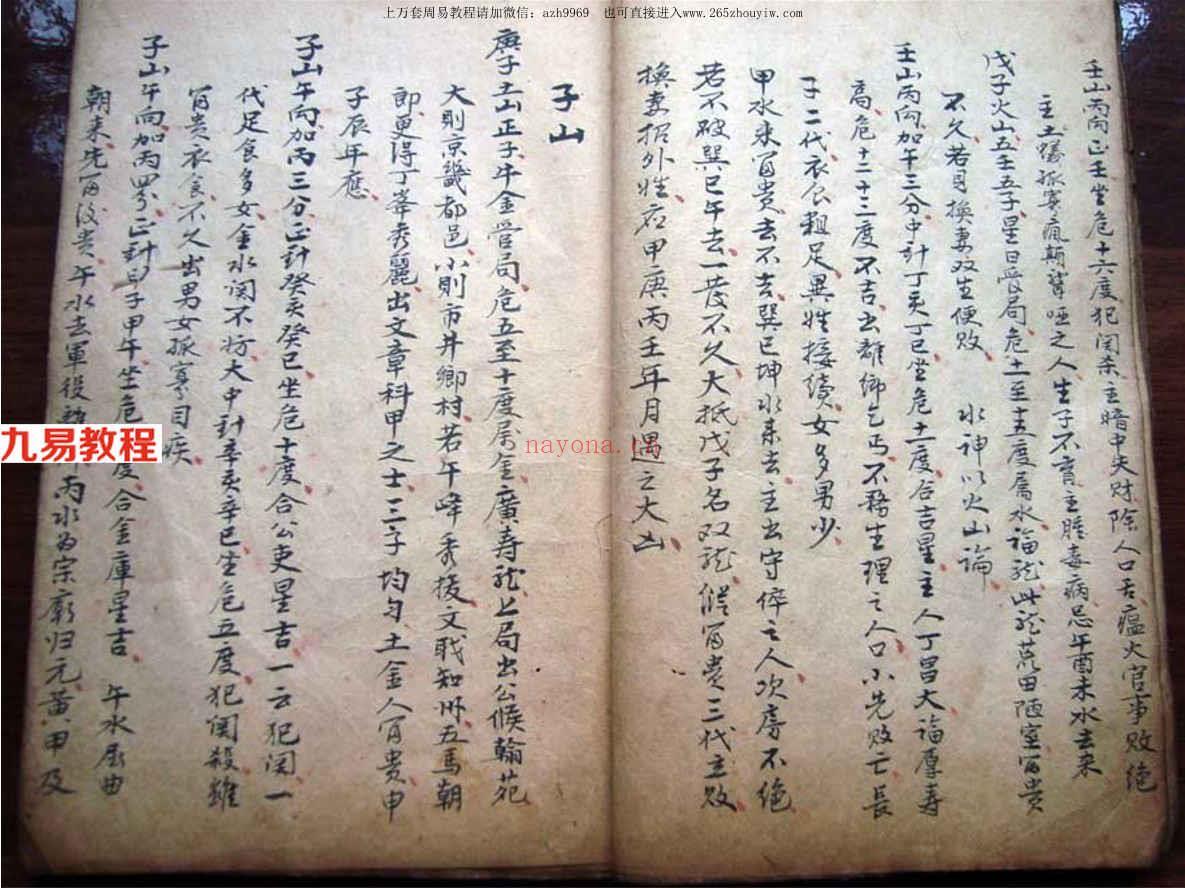 上万套周易教程请加微信：azh9969 也可直接进入www.265zhouyiw.com
壬山丙向正壬坐危十六度犯関杀主暗中失财除人口舌瘟火官事敗絶
主土蟻孤寡瘋顛聾啞之人生子不育主腫毒病忌午酉未水去来
戊子火山五壬五子星日管局危十一至十五度属水福龍此龍荒田陋室富贵
不久若見換妻双生便敗 水神以火山論
壬山丙向加午三分中計丁亥丁巳坐危十一度合吉星主人丁昌大福厚寿
高危十二十三度不吉出離鄉乞丐不務生理之人口小先敗亡長
子二代衣食粗足異姓接續女多男少
甲水来富贵去不去巽巳坤水来去主出守倅之人次房不絶
若不破巽巳午去一發不久大抵戊子名双龍縱富贵三代主敗
換妻招外姓应甲庚丙壬年月遇之大凶
子山
庚子土山正子午金管局危五至十度属金廣寿龍上局出公候翰苑
大則京畿都邑小則市井鄉村若午峰秀拔文職知州五馬朝
郎更得丁峯秀麗出文章科甲之士三子均匀土金人富贵申
子辰年應
子山午向加丙三分正計癸亥癸巳坐危十度合公吏星吉一云犯関一
代足食多女金水関不妨大中計辛亥辛巳坐危五度犯関殺雖
富贵衣食不久出男女孤寡目疾
子山午向加丙四分正計 子甲午坐危 度合金庫星吉 午水屈曲
朝来先富後贵午水去軍役 丙水为宗廟归元黄甲及
九易教程
nayona.cn